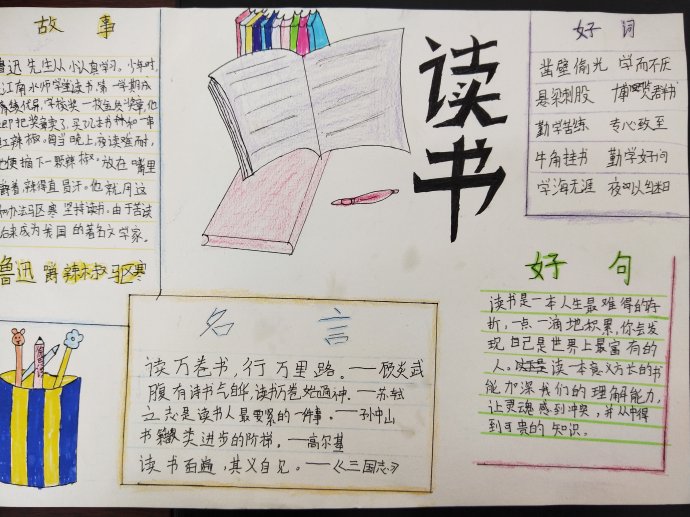 故事
鲁迅先生从小认真学习。少年时,
江南水师学堂读书,第一学期成
绩优异,学校奖一枚金质奖章,他
即把奖章卖了,买几本书和一串
红辣椒。每当晚上夜读难耐,
他便摘下一颗辣椒,放在嘴里
嚼着,辣得直冒汗。他就用这
种办法驱寒坚持读书。由于苦读
后来成为我国的著名文学家。
鲁迅嚼辣椒驱寒
读书
好词
凿壁偷光 学而不厌
悬梁刺股 博览群书
勤学苦练 专心致至
牛角挂书 勤学好问
学海无涯 夜以继日
名言
读万卷书,行万里路。——顾炎武
腹有诗书气自华,读书万卷始通神。——苏轼
立志是读书人最要紧的一件事。——孙中山
书籍是人类进步的阶梯。——高尔基
读书百遍,其义自见。——《三国志》
好句
读书是一本人生最难得的存
折,一点一滴地积累,你会发
现自己是世界上最富有的
人。读一本意义方长的书
能加深我们的理解能力,
让灵魂感到冲突,并从中得
到可贵的知识。